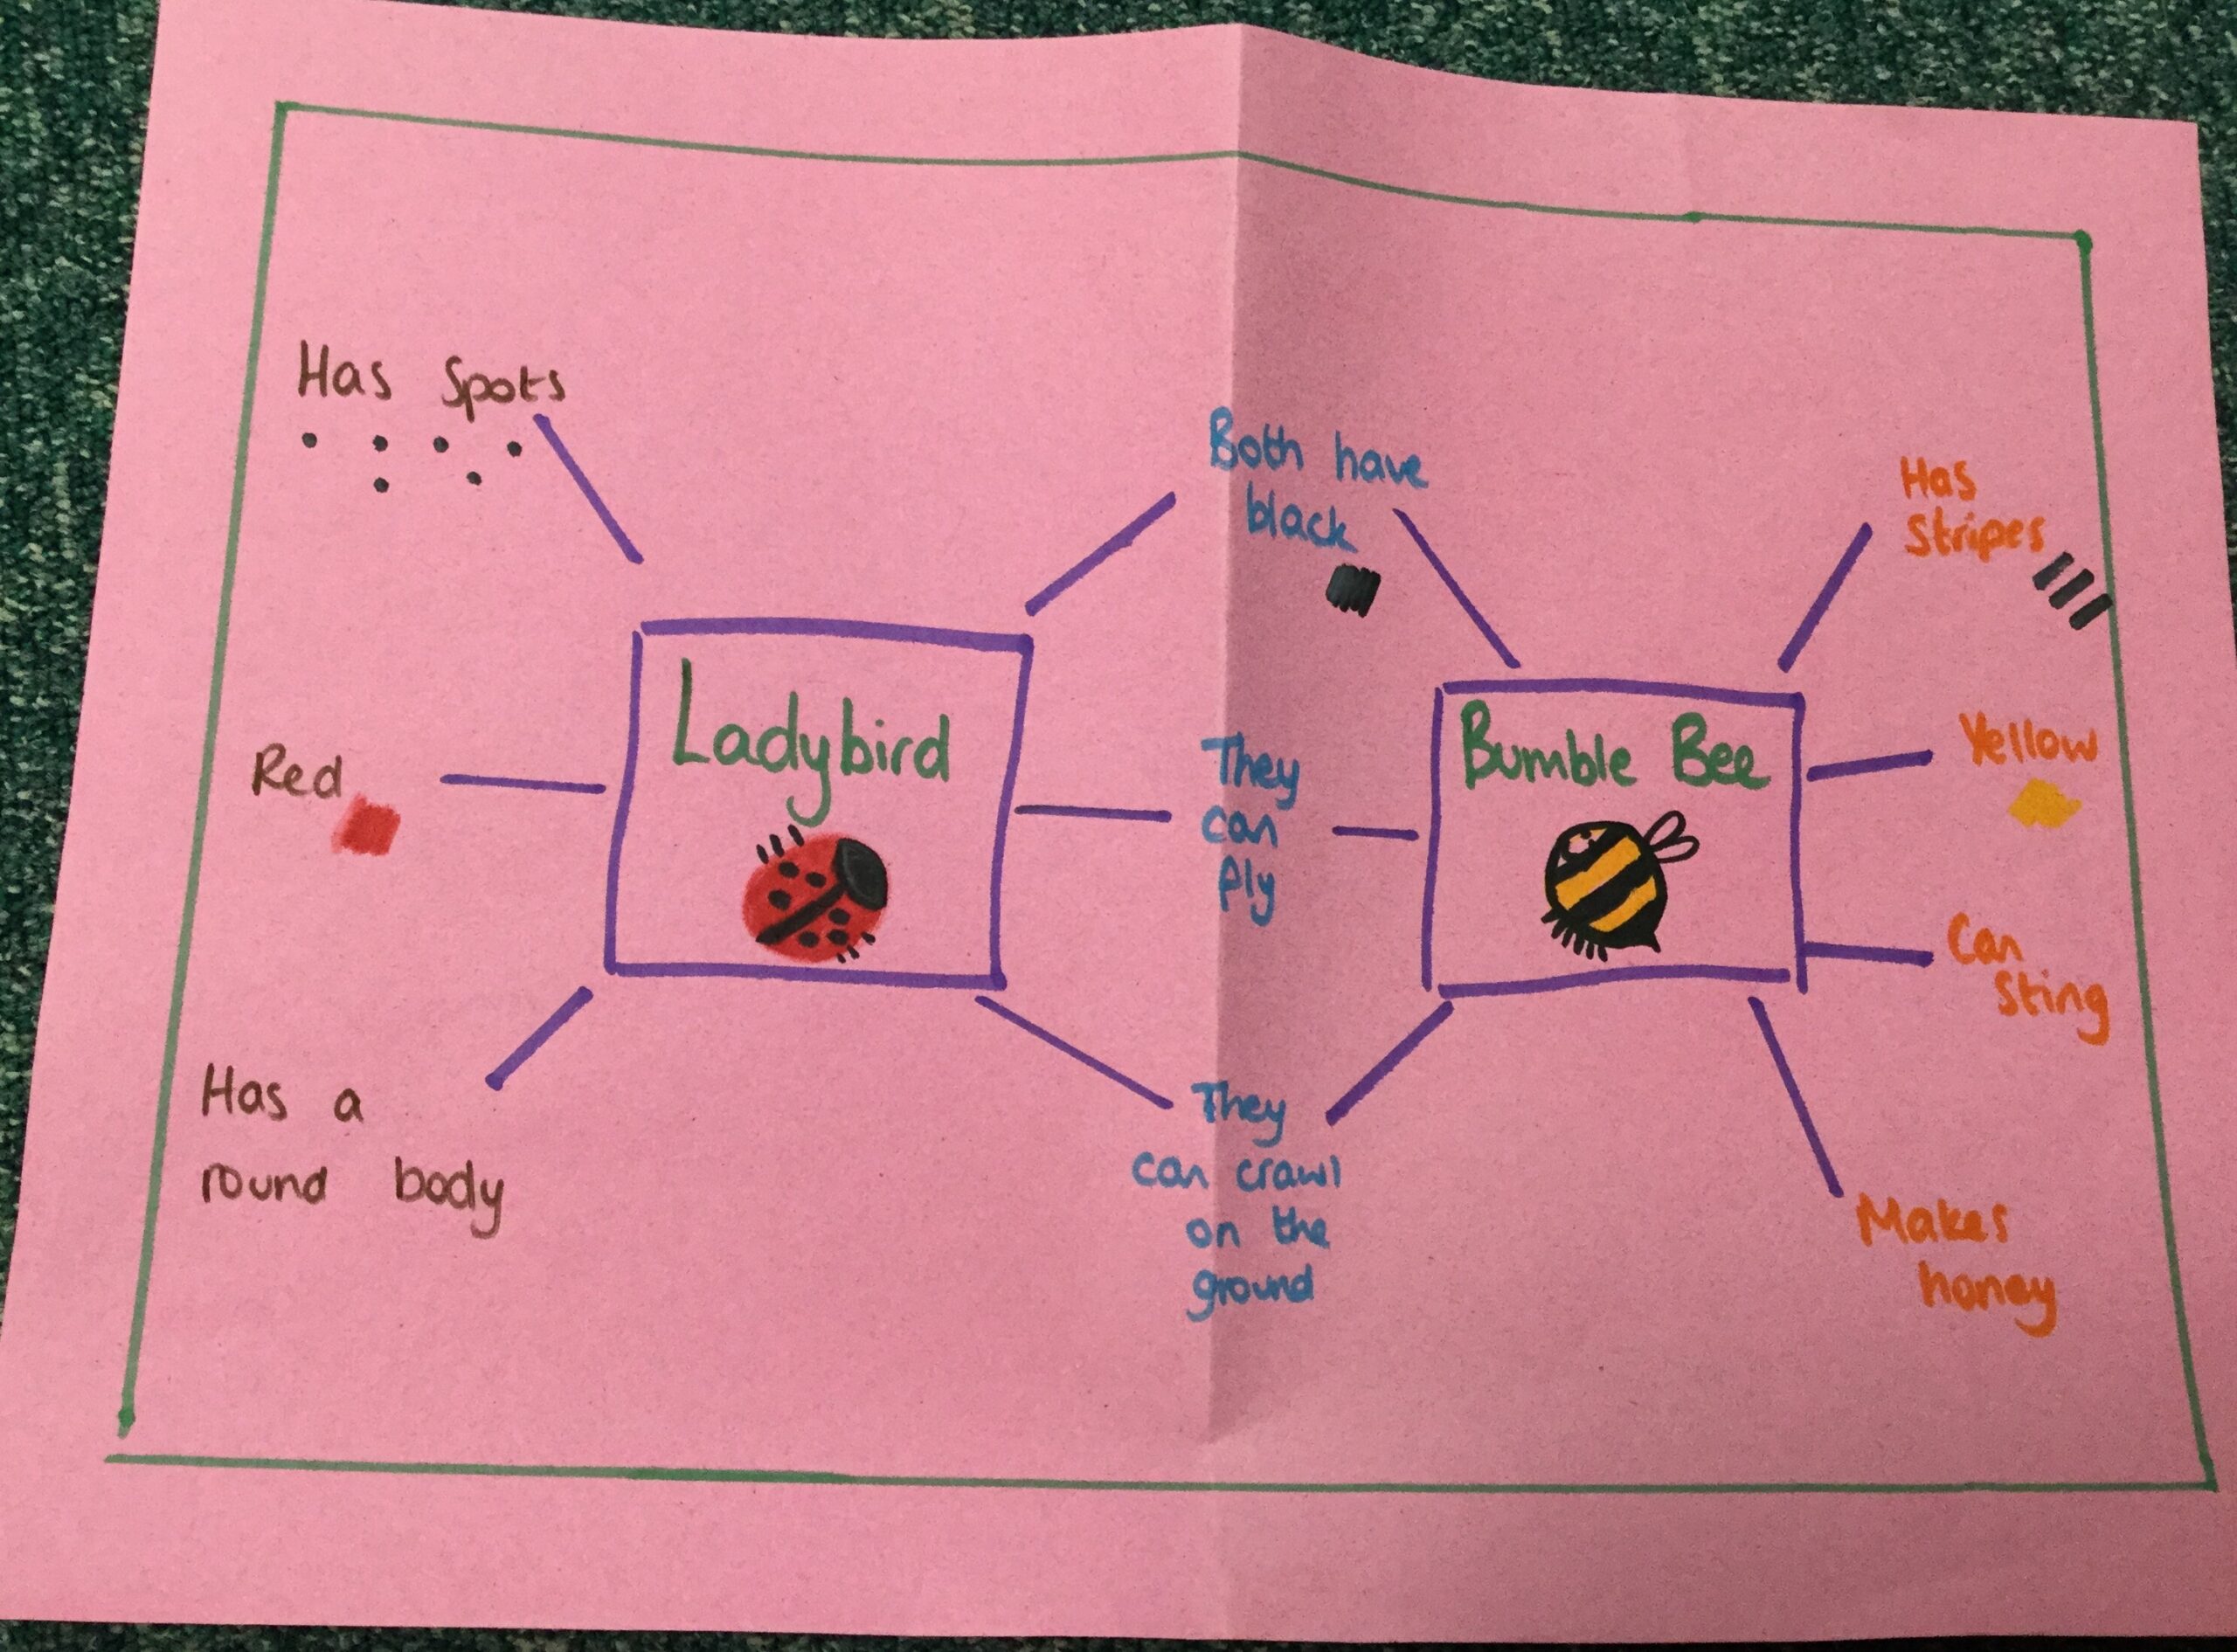 Has Spots
Red
Has a
round body
Ladybird
Both have
black
They
can
fly
They
can crawl
on the
ground
Bumble Bee
Has
Stripes
Yellow
Can
Sting
Makes
honey